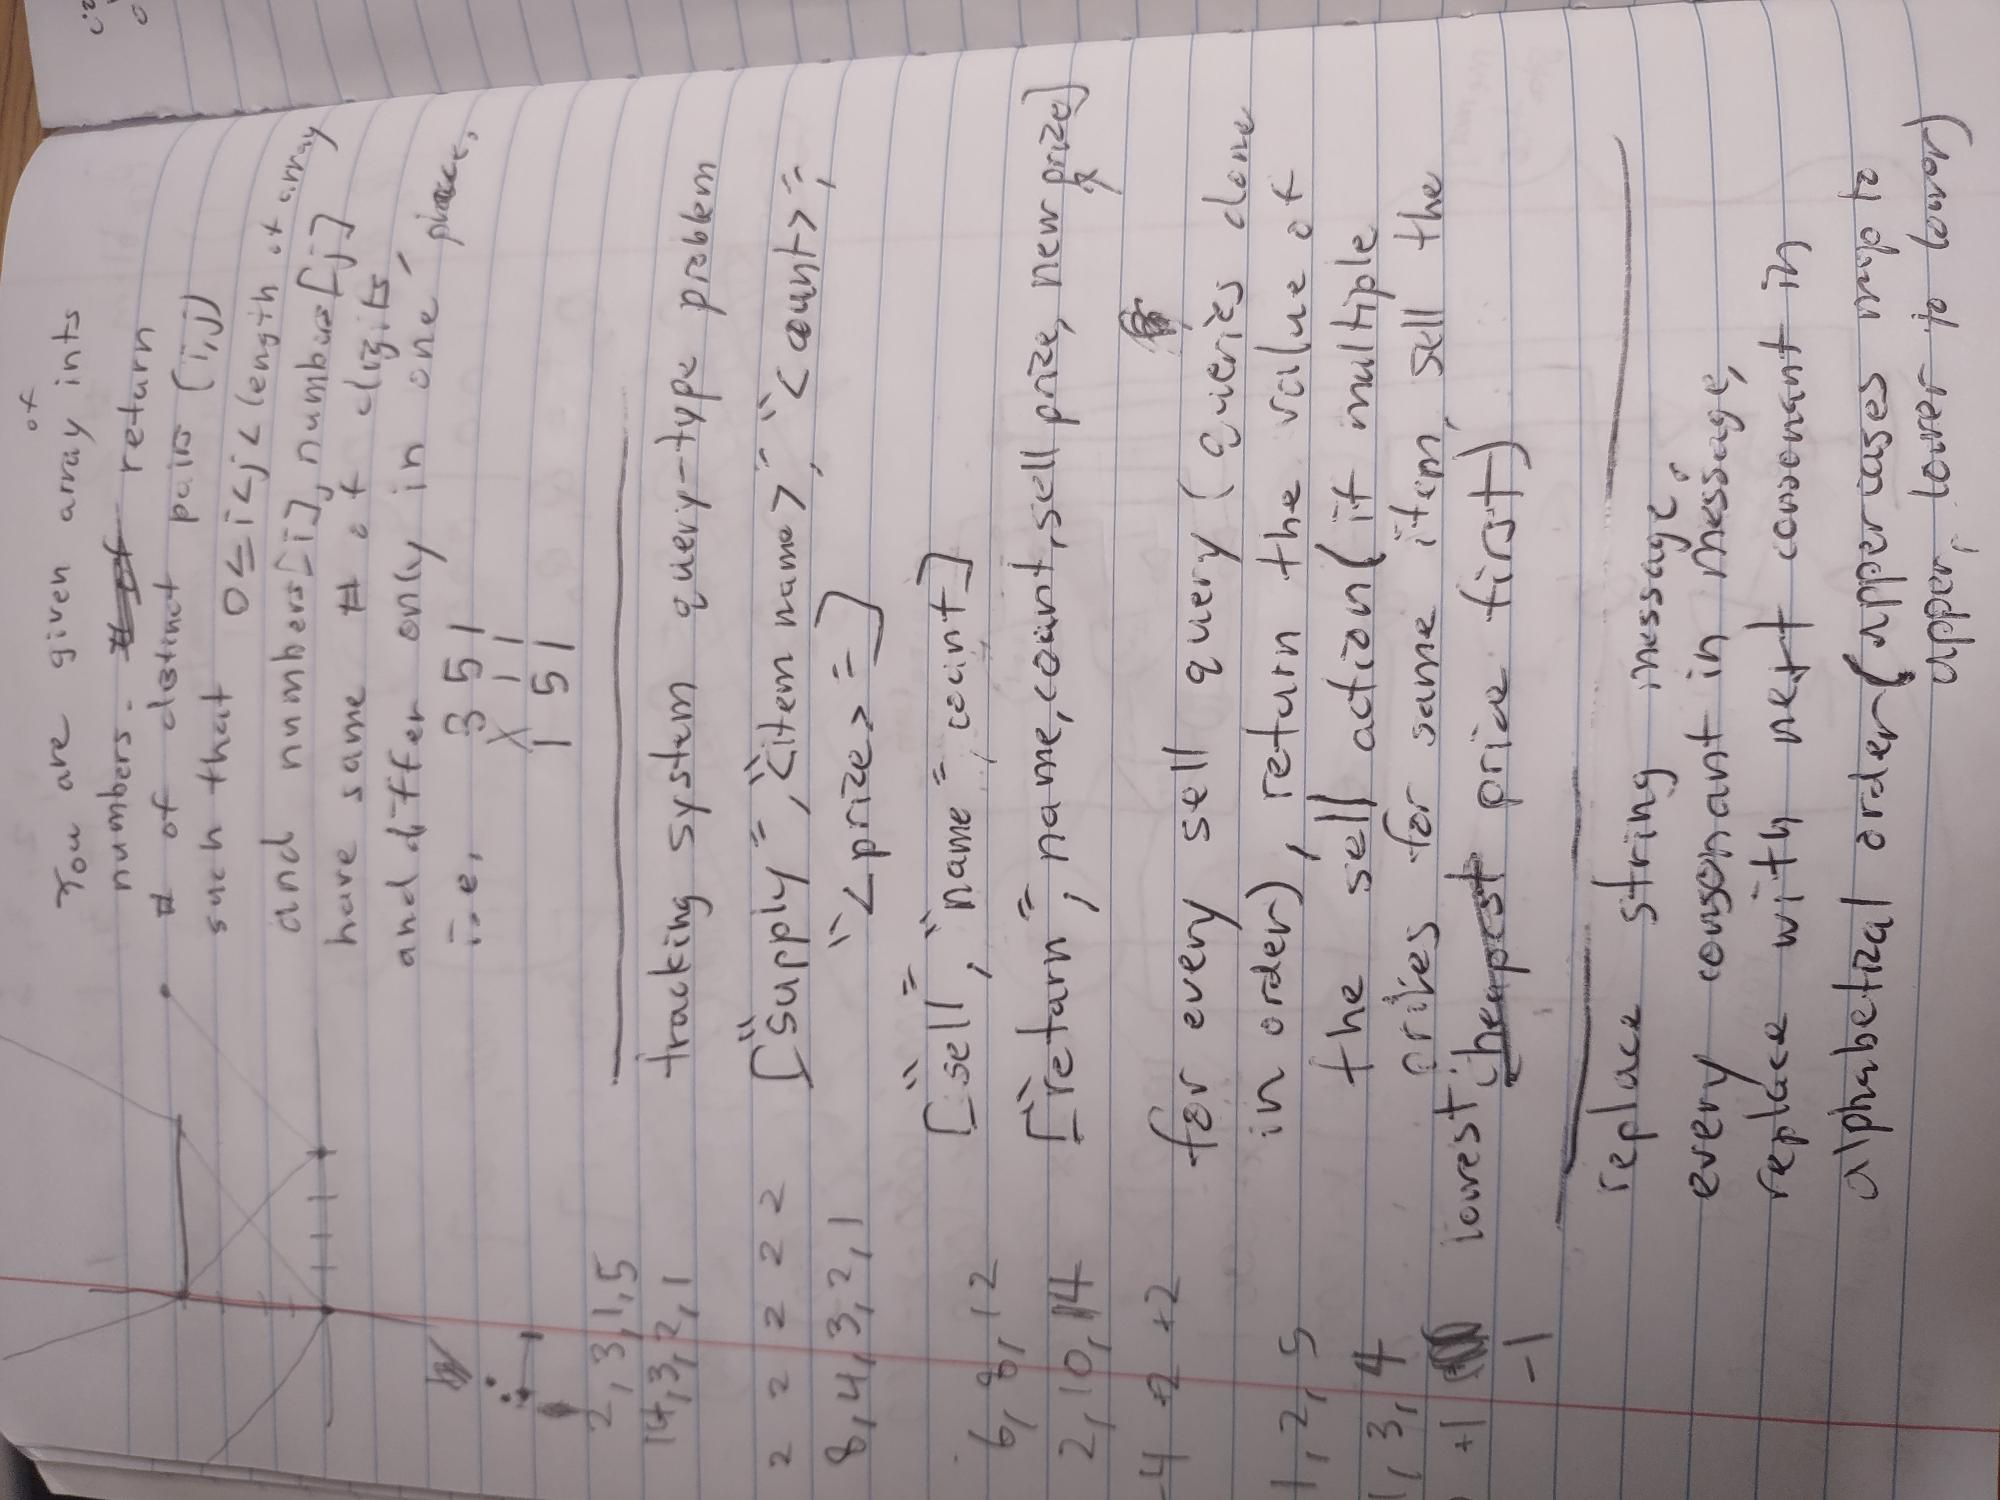 of
You are given array ints
numbers. # of return
# of distinct pairs (i,j)
such that 0≤i<j<length of array
and numbers[i], numbers[j]
have same # of digits,
and differ only in one place.
i.e. 351
X11
151
2, 3, 1, 5
14, 3, 2, 1
tracking system query-type problem
2 2 2 2 2
["supply", "<item name>", "<count>",
8, 4, 3, 2, 1
"<prize>"]
["sell", "name", count]
6, 8, 12
["return", name, count, sell prize, new prize]
2, 10, 14
-4 +2 +2
for every sell query (queries done
in order), return the value of
1, 2, 5
the sell action (if multiple
1, 3, 4
prizes for same item, sell the
+1
lowest cheapest price first)
-1
replace string message.
every consonant in message,
replace with next consonant in
alphabetical order (uppercases map to
upper, lower to lower)